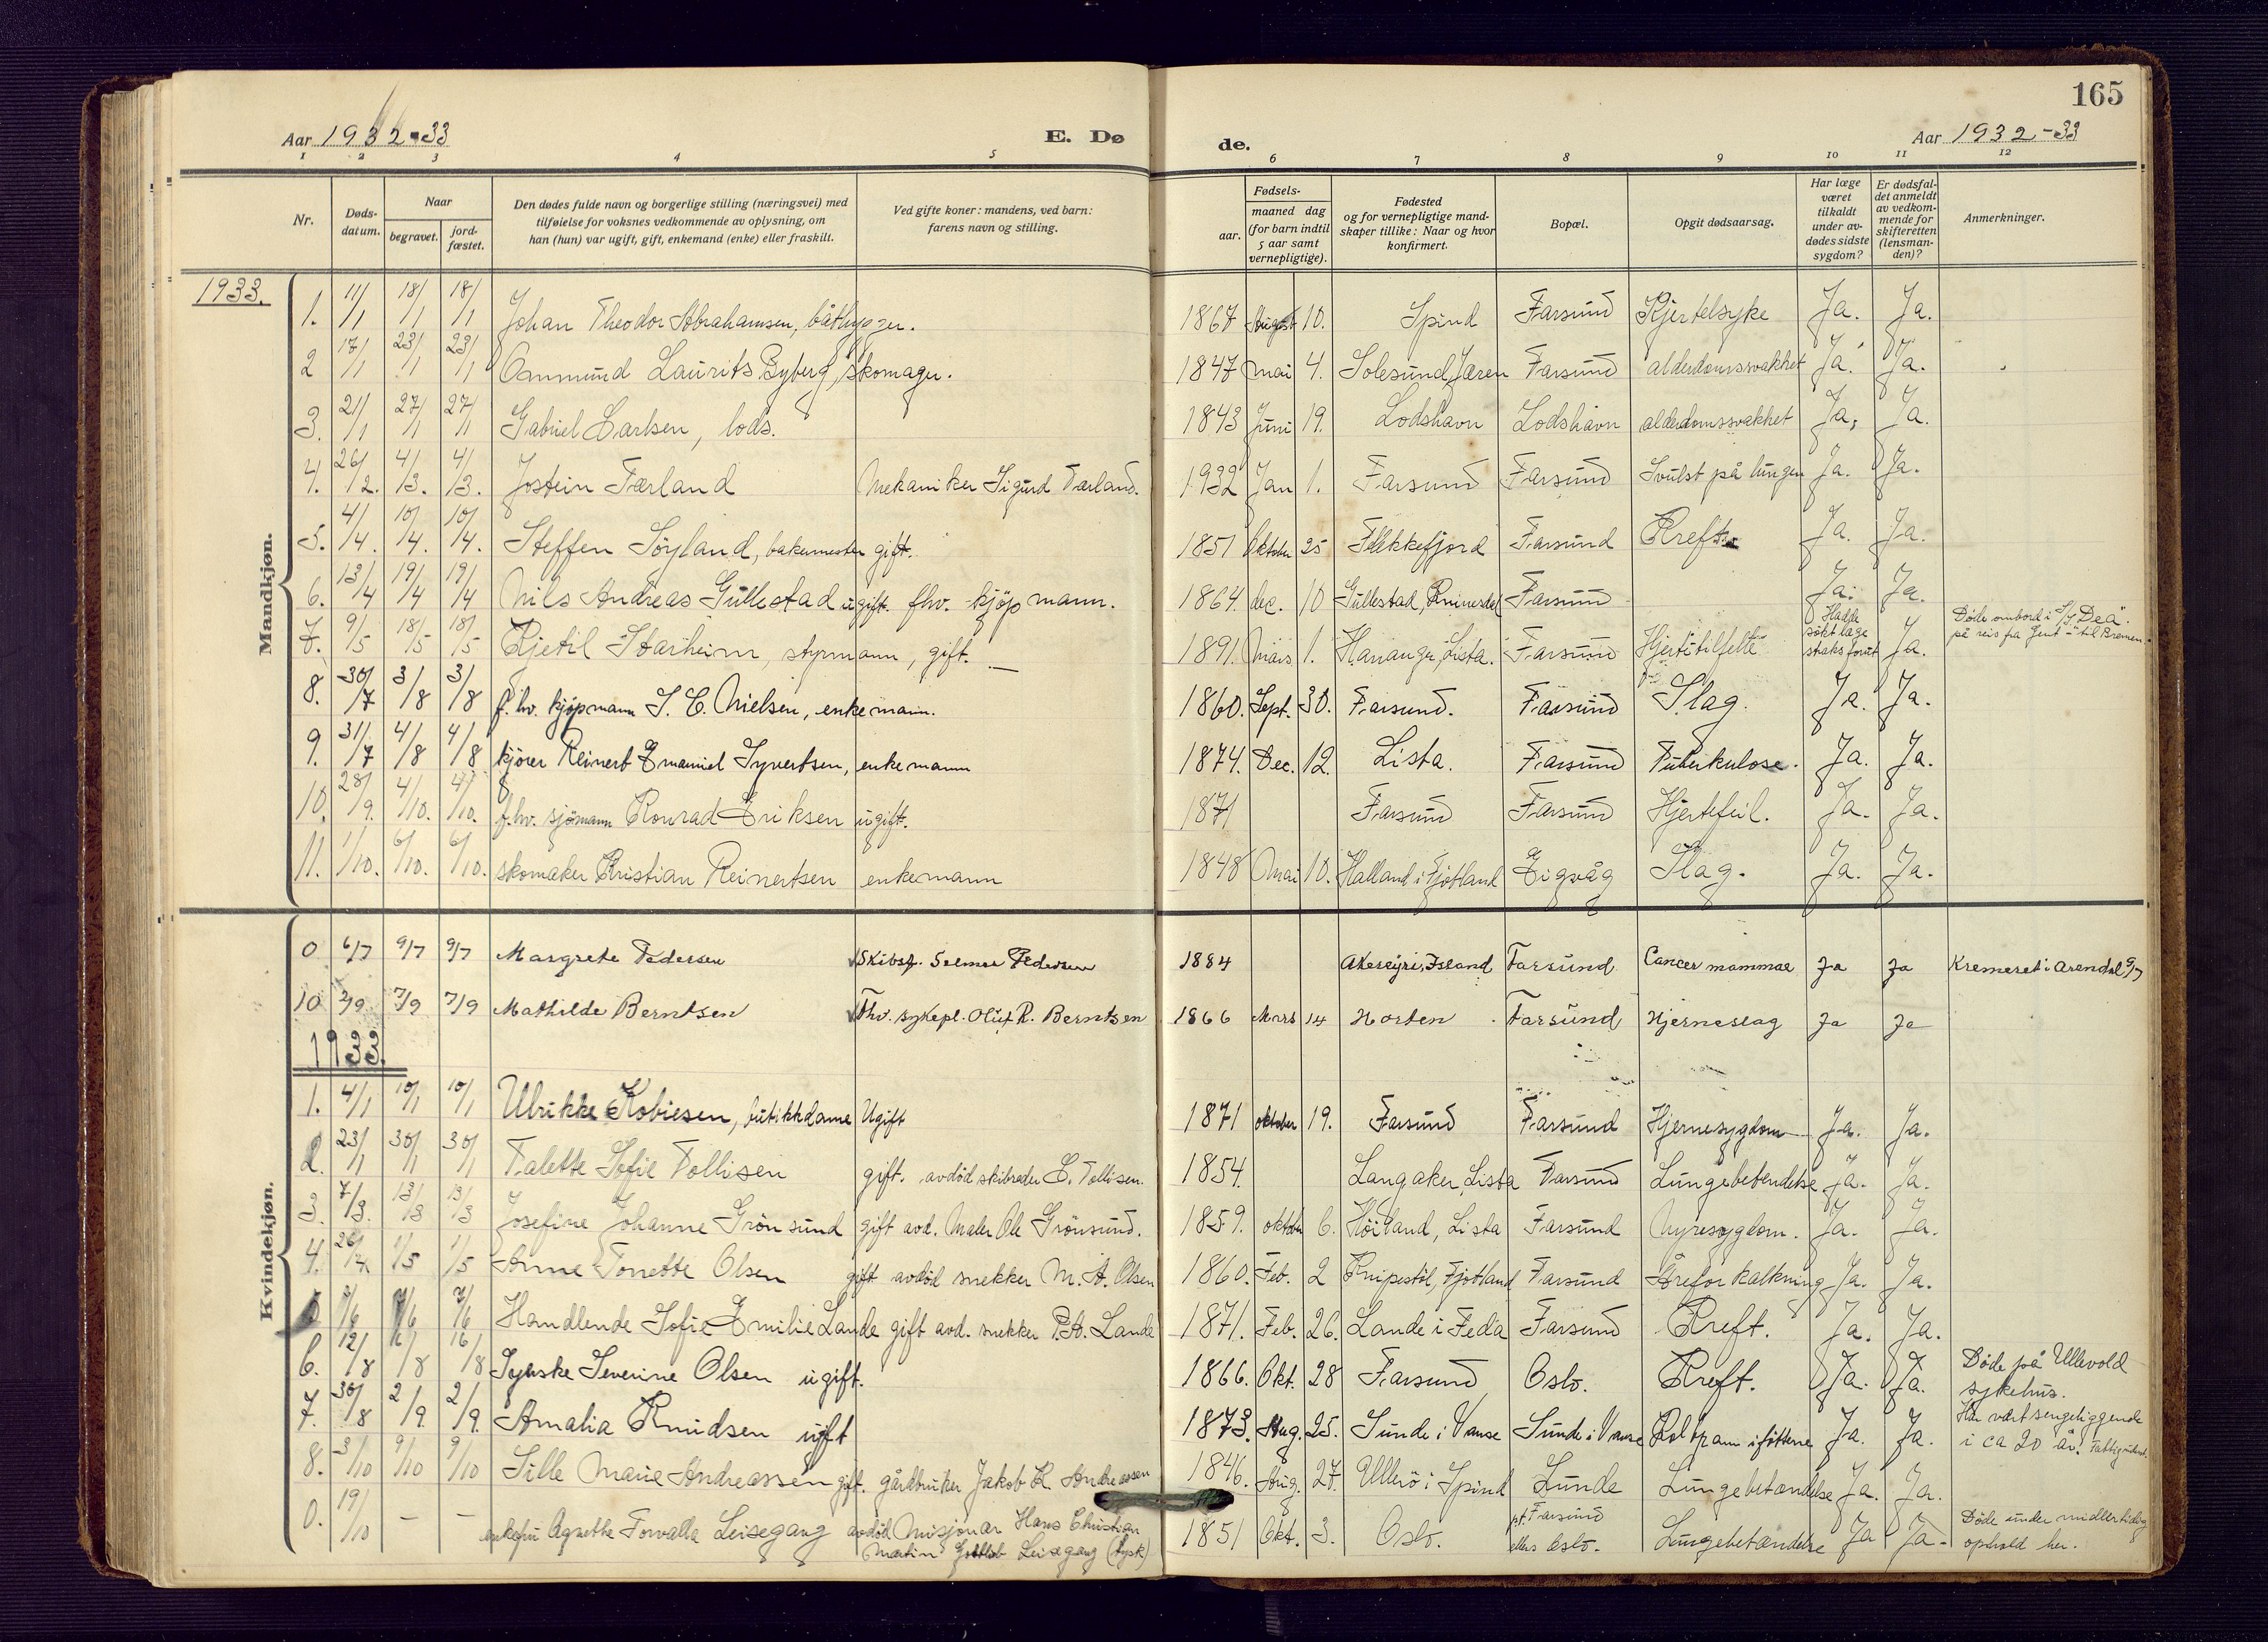 165
Aar 1932-33
E. Døde.
Aar 1932-33
1 2 3 4 5 6 7 8 9 10 11 12
Nr.
Døds-
datum.
Naar
begravet.
jord-
fæstet.
Den dødes fulde navn og borgerlige stilling (næringsvei) med
tilføielse for voksnes vedkommende av oplysning, om
han (hun) var ugift, gift, enkemand (enke) eller fraskilt.
Ved gifte koner: mandens, ved barn:
farens navn og stilling.
Fødsels-
aar.
maaned dag
(for barn indtil
5 aar samt
vernepligtige).
Fødested
og for vernepligtige mand-
skaper tillike: Naar og hvor
konfirmert.
Bopæl.
Opgit dødsaarsag.
Har læge
været
tilkaldt
under av-
dødes sidste
sygdom?
Er dødsfal-
det anmeldt
av vedkom-
mende for
skifteretten
(lensman-
den)?
Anmerkninger.
Mandkjøn.
1933.
1. 11/1 18/1 18/1 Johan Theodor Abrahamsen, båtbygger. 1867 August 10. Spind Farsund Kjertelsyke Ja. Ja.
2 17/1 23/1 23/1 Ommund Laurits Byberg, skomager. 1847 mai 4. Solesund, Jæren Farsund alderdomssvakhet Ja. Ja.
3. 21/1 27/1 27/1 Gabriel Carlsen, lods. 1843 Juni 19. Lodshavn Lodshavn alderdomssvakhet Ja. Ja.
4. 26/2. 4/3. 4/3. Jostein Færland Mekaniker Sigurd Færland. 1932 Jan 1. Farsund Farsund Svulst på lungen Ja. Ja.
5. 4/4. 10/4. 10/4. Steffen Söyland, bakermester gift. 1851 Oktober 25 Flekkefjord Farsund Kreft Ja. Ja.
6. 13/4 19/4 19/4 Nils Andreas Gullestad ugift. fhv. kjöpmann. 1864. dec. 10 Gullestad, Kvinesdal Farsund Ja. Ja.
7. 9/5 18/5 18/5 Kjetil Starheim, styrmann, gift. 1891. Mars 1. Hananger, Lista. Farsund Hjertetilfelle Hadde søkt læge straks forut Ja. Døde ombord i S/S "Dea"
på reis fra Gent til Bremen.
8. 30/7 3/8 3/8 f. hv. kjøpmann S. C. Nielsen, enkemann. 1860. Sept. 30. Farsund. Farsund Slag. Ja. Ja.
9. 31/7 4/8 4/8 kjörer Reinert Emanuel Syvertsen, enkemann 1874. Dec. 12. Lista. Farsund Tuberkulose. Ja. Ja.
10. 28/9. 4/10. 4/10. f.hv. sjømann Konrad Eriksen ugift. 1871 Farsund Farsund Hjertefeil. Ja. Ja.
11. 1/10. 6/10. 6/10. skomaker Kristian Reinertsen enkemann 1848 Mai 10. Halland i Fjotland Eigvåg Slag. Ja. Ja.
Kvindekjøn.
0 6/7 9/7 9/7 Margrete Pedersen Skibsf. Selmer Pedersen 1884 Akereyri, Island Farsund Cancer mammae Ja Ja Kremeret i Arendal 9/7
10 2/9 7/9 7/9 Mathilde Berntsen Fhv. sykepl. Oluf R. Berntsen 1866 Mars 14 Horten Farsund Hjerneslag Ja Ja
1933.
1. 4/1 10/1 10/1 Ulrikke Tobiesen, butikkdame Ugift 1871 oktober 19. Farsund Farsund Hjernesygdom Ja. Ja.
2. 23/1 30/1 30/1 Talette Sofie Tollisen gift. avdöd skibreder E. Tollisen. 1854. Langaker, Lista Farsund Lungebetendelse Ja. Ja.
3. 7/3. 13/3 13/3 Josefine Johanne Grönsund gift avd. Maler Ole Grönsund. 1859. oktober 6. Höiland, Lista Farsund Nyresygdom. Ja. Ja.
4. 26/4 1/5 1/5 Anne Tonette Olsen gift avdöd snekker M. A. Olsen 1860. Feb. 2 Knipestöl, Fjotland Farsund Åreforkalkning Ja. Ja.
5 2/6 7/6 7/6 Handlende Sofie Emilie Lande gift avd. snekker P.A. Lande 1871. Feb. 26. Lande i Feda Farsund Kreft. Ja. Ja.
6. 12/8 16/8 16/8 Syerske Severine Olsen ugift. 1866. Okt. 28 Farsund Oslo. Kreft. Ja. Ja. Döde på Ullevold
sykehus.
7. 30/8 2/9. 2/9. Amalia Knudsen ugift 1873. Aug. 25. Sunde i Vanse Sunde i Vanse Koldbran i föttene Ja. Ja. Har vært sengeliggende
i ca 20 år.
8. 3/10 9/10 9/10 Sille Marie Andreassen gift. gårdbruker Jakob K. Andreassen 1846. Aug. 27. Ullerö i Spind Lunde Lungebetændelse Ja. Ja.
0. 19/10 – – enkefru Agnethe Torvalla Leisegang avdöd Misjonær Hans Christian
Martin Gottlob Leisegang (tysk) 1851 Okt. 3. Oslo. pt. Farsund
ellers Oslo. Lungebetændelse Ja Ja. Döde under midlertidig
ophold her.